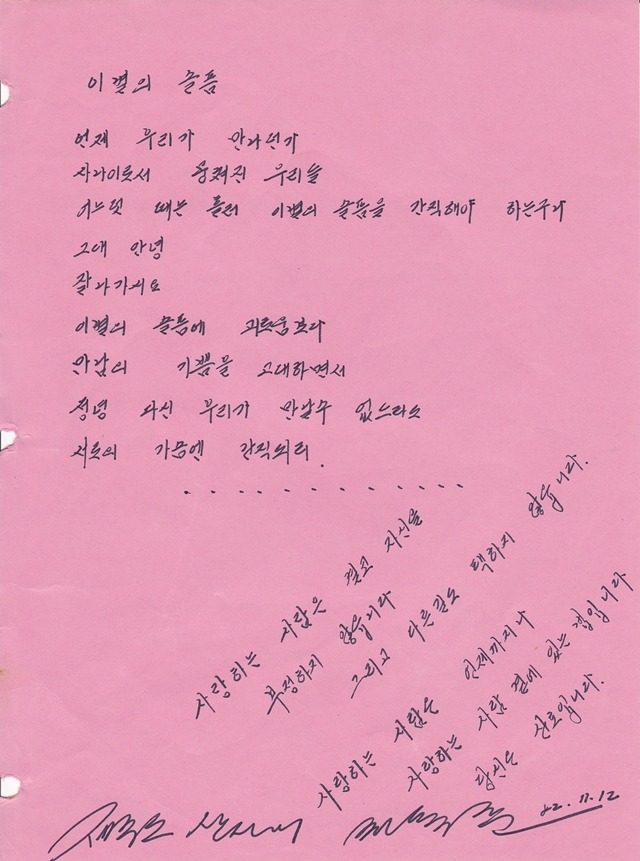 이별의 슬픔
언제 우리가 만나던가
사나이로서 뭉쳐진 우리들
어느덧 때는 흘러 이별의 슬픔을 간직해야 하는구나
그대 안녕
잘 나가시요
이별의 슬픔에 괴로움보다
만남의 기쁨을 고대하면서
정녕 다신 우리가 만날수 없느라도
서로의 가슴엔 간직되리.
사랑하는 사람은 결코 자신을
부정하지 않습니다
그리고 다른길도 택하지 않습니다.
사랑하는 사람은 언제까지나
사랑하는 사람 곁에 있는 겁입니다
당신은 산호입니다.
82.11.12